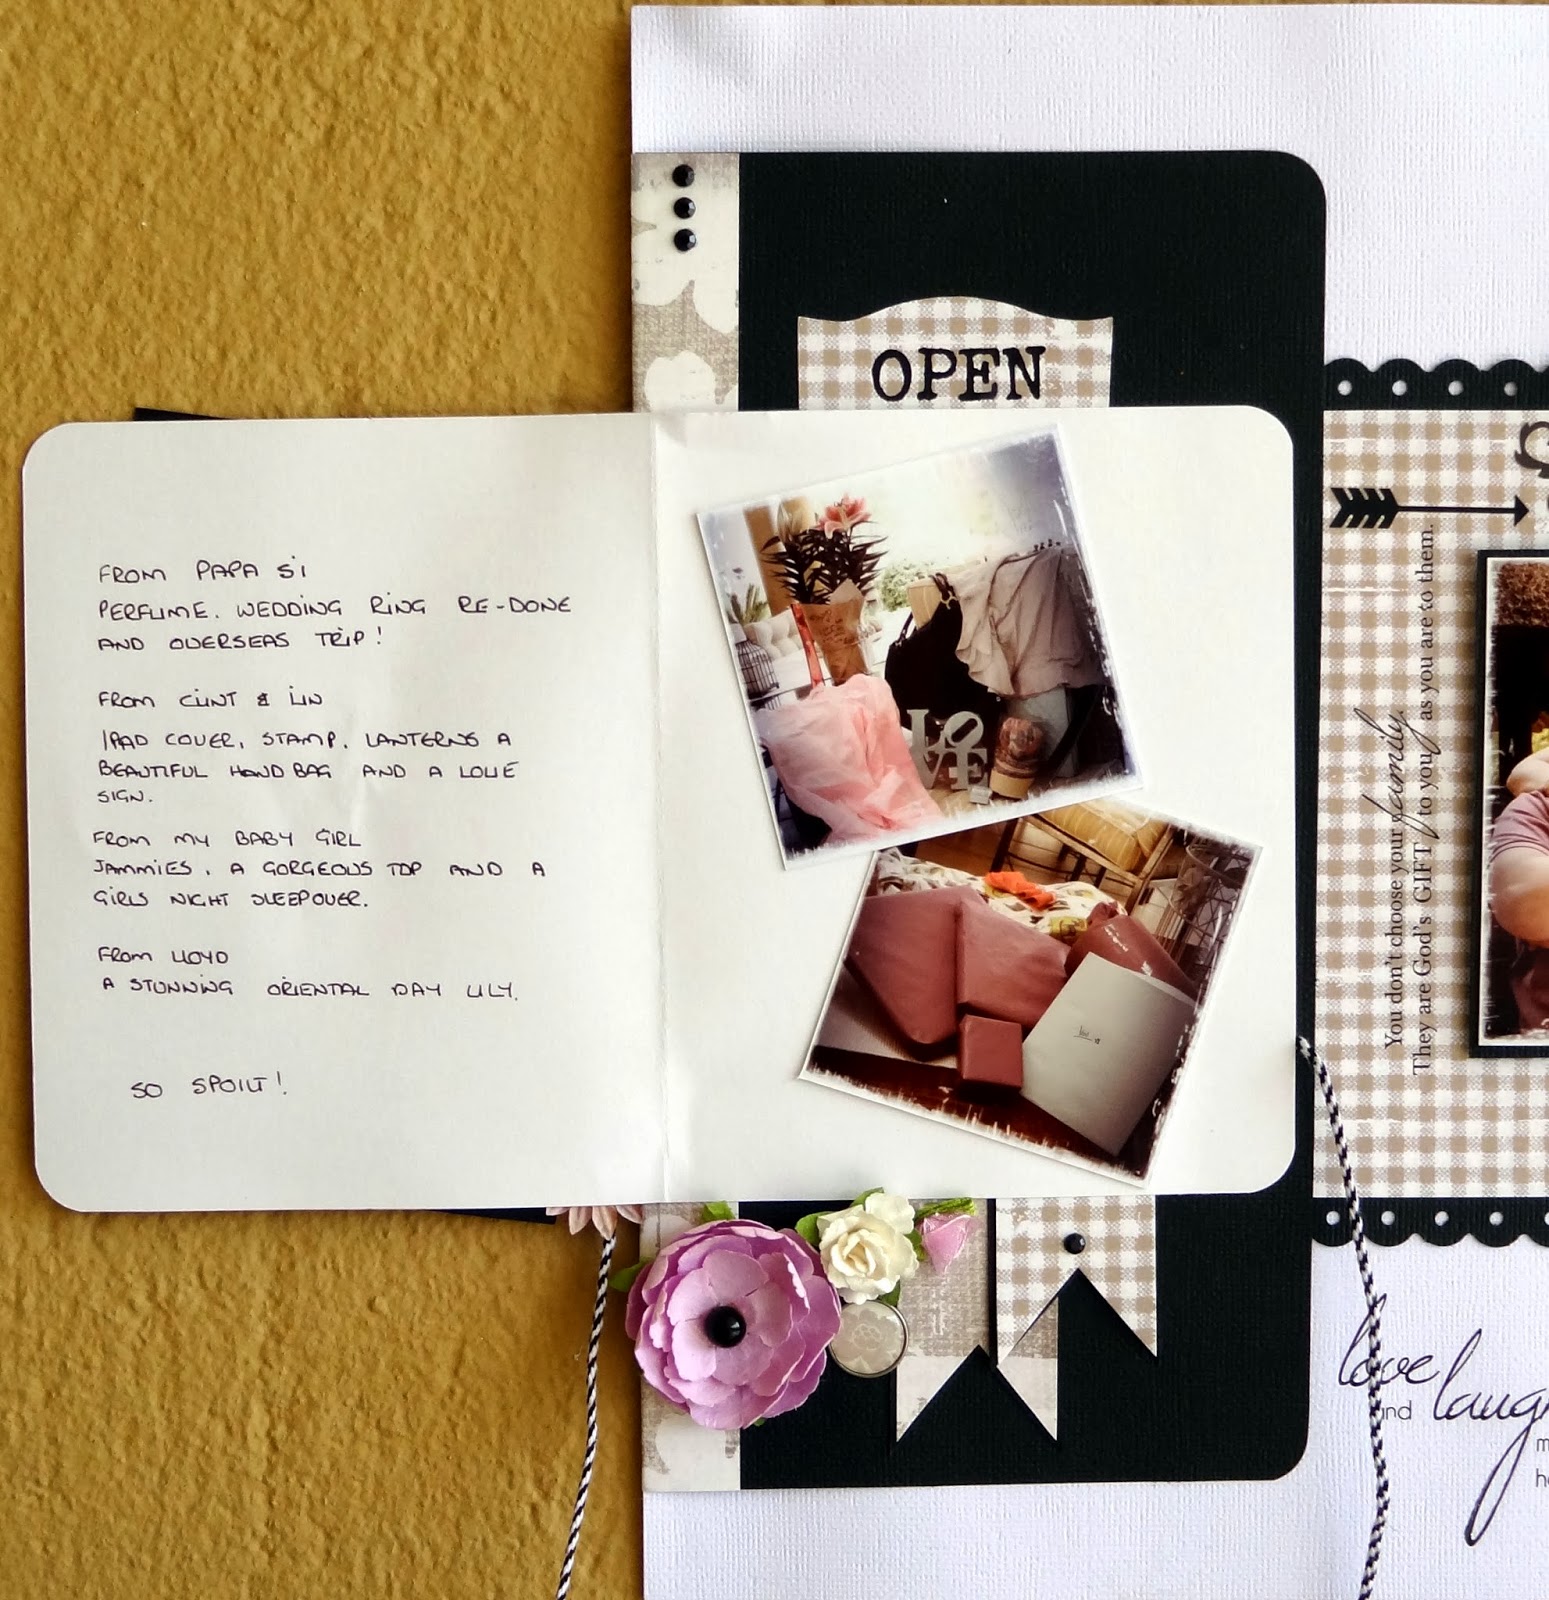 OPEN
FROM PAPA Si
PERFUME. WEDDING RING RE-DONE
AND OVERSEAS TRiP!
FROM CLINT & LIN
IPAD COVER, STAMP, LANTERNS A
BEAUTIFUL HANDBAG AND A LOVE
SIGN.
FROM MY BABY GIRL
JAMMIES, A GORGEOUS TOP AND A
GIRLS NIGHT SLEEPOVER.
FROM LLOYD
A STUNNING ORIENTAL DAY LILY.
SO SPOILT!
LO
VE
You don't choose your family.
They are God's GIFT to you, as you are to them.
love
and laugh